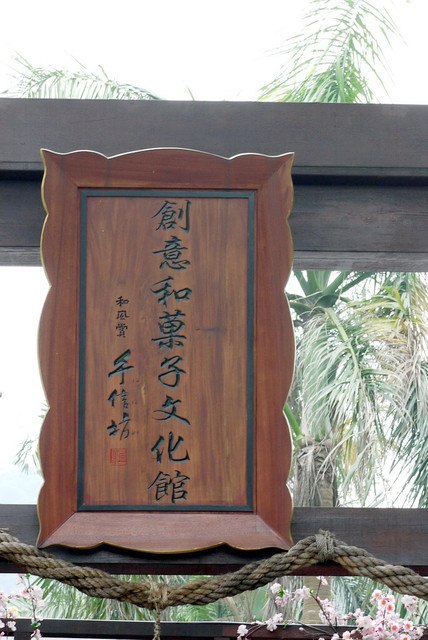 創意和菓子文化館
和風賞
手信坊